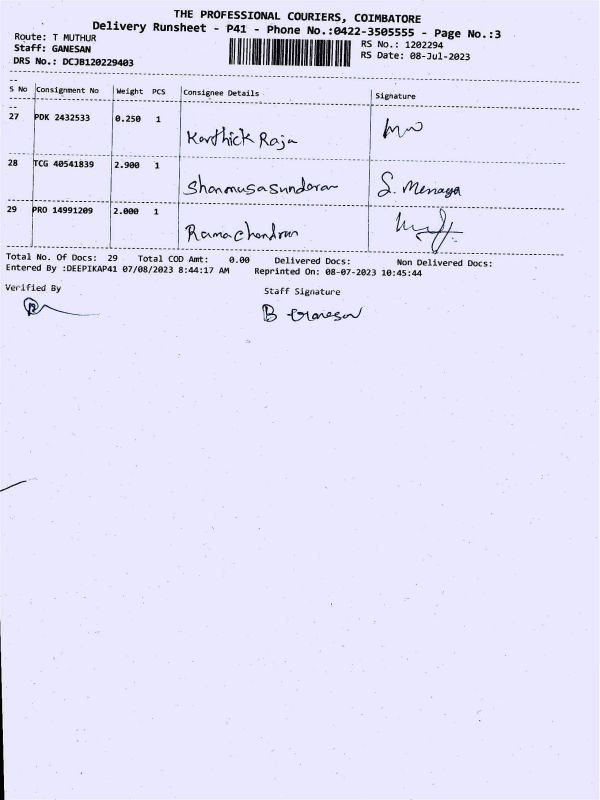 THE PROFESSIONAL COURIERS, COIMBATORE
Delivery Runsheet - P41 - Phone No.:0422-3505555 - Page No.:3
Route: T MUTHUR
Staff: GANESAN
DRS No.: DCJB120229403
RS No.: 1202294
RS Date: 08-Jul-2023
S No Consignment No Weight PCS Consignee Details Signature
27 PDK 2432533 0.250 1
Karthick Raja
28 TCG 40541839 2.900 1
Shanmugasundaram S. Menaga
29 PRO 14991209 2.000 1
Ramachandran
Total No. Of Docs: 29 Total COD Amt: 0.00 Delivered Docs: Non Delivered Docs:
Entered By :DEEPIKAP41 07/08/2023 8:44:17 AM Reprinted On: 08-07-2023 10:45:44
Verified By Staff Signature
B Ganesan